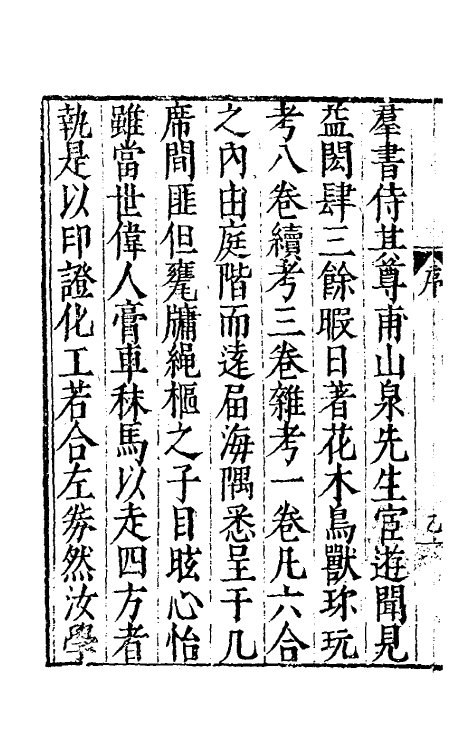 羣書侍其尊甫山泉先生宦遊聞見
益閎肆三餘暇日著花木鳥獸珎玩
考八卷續考三卷雜考一卷凡六合
之內由庭階而逺届海隅悉呈干几
席間匪但甕牖繩樞之子目眩心怡
雖當世偉人膏車秣馬以走四方者
執是以印證化工若合左劵然汝學
序